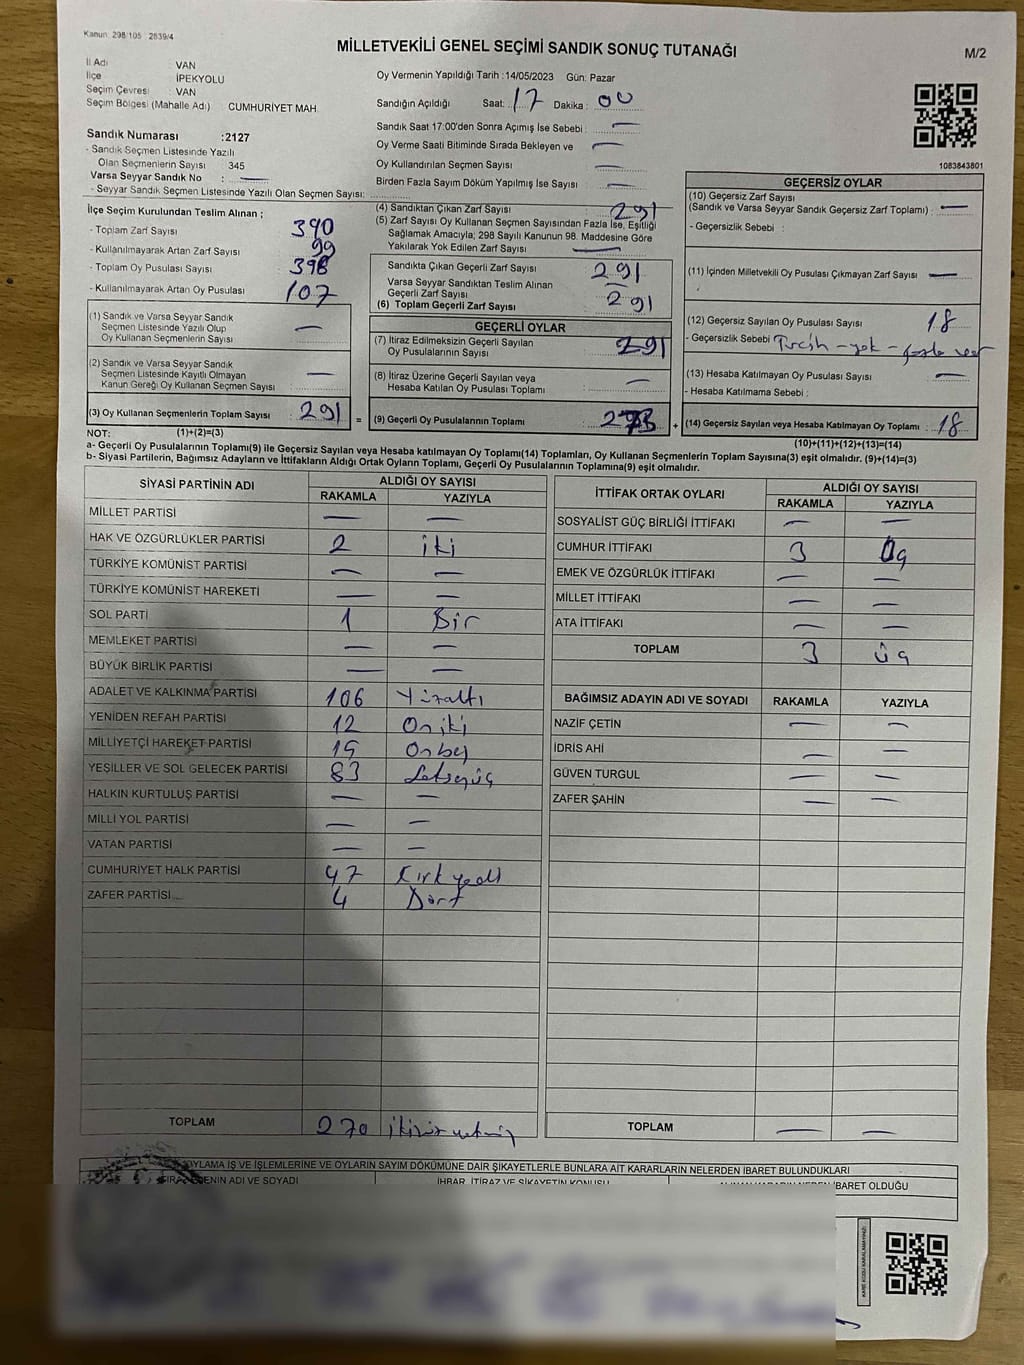 Kanun: 298/105 2839/4
MİLLETVEKİLİ GENEL SEÇİMİ SANDIK SONUÇ TUTANAĞI
M/2
İl Adı : VAN
İlçe : İPEKYOLU
Seçim Çevresi : VAN
Seçim Bölgesi (Mahalle Adı) CUMHURİYET MAH.
Oy Vermenin Yapıldığı Tarih :14/05/2023 Gün: Pazar
Sandığın Açıldığı Saat: 17 Dakika : 00
Sandık Saat 17:00'den Sonra Açımış İse Sebebi : —
Oy Verme Saati Bitiminde Sırada Bekleyen ve —
Oy Kullandırılan Seçmen Sayısı : —
Birden Fazla Sayım Döküm Yapılmış İse Sayısı : —
1083843801
Sandık Numarası :2127
- Sandık Seçmen Listesinde Yazılı
Olan Seçmenlerin Sayısı 345
Varsa Seyyar Sandık No : —
- Seyyar Sandık Seçmen Listesinde Yazılı Olan Seçmen Sayısı:
İlçe Seçim Kurulundan Teslim Alınan ;
- Toplam Zarf Sayısı 390
- Kullanılmayarak Artan Zarf Sayısı : 99
- Toplam Oy Pusulası Sayısı : 398
- Kullanılmayarak Artan Oy Pusulası : 107
(1) Sandık ve Varsa Seyyar Sandık
Seçmen Listesinde Yazılı Olup
Oy Kullanan Seçmenlerin Sayısı : —
(2) Sandık ve Varsa Seyyar Sandık
Seçmen Listesinde Kayıtlı Olmayan
Kanun Gereği Oy Kullanan Seçmen Sayısı : —
(3) Oy Kullanan Seçmenlerin Toplam Sayısı : 291
(1)+(2)=(3)
(4) Sandıktan Çıkan Zarf Sayısı : 291
(5) Zarf Sayısı Oy Kullanan Seçmen Sayısından Fazla İse, Eşitliği
Sağlamak Amacıyla; 298 Sayılı Kanunun 98. Maddesine Göre
Yakılarak Yok Edilen Zarf Sayısı : —
Sandıkta Çıkan Geçerli Zarf Sayısı : 291
Varsa Seyyar Sandıktan Teslim Alınan
Geçerli Zarf Sayısı : —
(6) Toplam Geçerli Zarf Sayısı : 291
GEÇERLİ OYLAR
(7) İtiraz Edilmeksizin Geçerli Sayılan
Oy Pusulalarının Sayısı : 291
(8) İtiraz Üzerine Geçerli Sayılan veya
Hesaba Katılan Oy Pusulası Toplamı : —
= (9) Geçerli Oy Pusulalarının Toplamı : 273
GEÇERSİZ OYLAR
(10) Geçersiz Zarf Sayısı
(Sandık ve Varsa Seyyar Sandık Geçersiz Zarf Toplamı) : —
- Geçersizlik Sebebi :
(11) İçinden Milletvekili Oy Pusulası Çıkmayan Zarf Sayısı : —
(12) Geçersiz Sayılan Oy Pusulası Sayısı : 18
- Geçersizlik Sebebi : Tercih - yok - fazla
(13) Hesaba Katılmayan Oy Pusulası Sayısı : —
- Hesaba Katılmama Sebebi :
+ (14) Geçersiz Sayılan veya Hesaba Katılmayan Oy Toplamı : 18
(10)+(11)+(12)+(13)=(14)
NOT:
a- Geçerli Oy Pusulalarının Toplamı(9) ile Geçersiz Sayılan veya Hesaba katılmayan Oy Toplamı(14) Toplamları, Oy Kullanan Seçmenlerin Toplam Sayısına(3) eşit olmalıdır. (9)+(14)=(3)
b- Siyasi Partilerin, Bağımsız Adayların ve İttifakların Aldığı Ortak Oyların Toplamı, Geçerli Oy Pusulalarının Toplamına(9) eşit olmalıdır.
SİYASİ PARTİNİN ADI ALDIĞI OY SAYISI
RAKAMLA YAZIYLA
MİLLET PARTİSİ — —
HAK VE ÖZGÜRLÜKLER PARTİSİ 2 iki
TÜRKİYE KOMÜNİST PARTİSİ — —
TÜRKİYE KOMÜNİST HAREKETİ — —
SOL PARTİ 1 Bir
MEMLEKET PARTİSİ — —
BÜYÜK BİRLİK PARTİSİ — —
ADALET VE KALKINMA PARTİSİ 106 Yüzaltı
YENİDEN REFAH PARTİSİ 12 Oniki
MİLLİYETÇİ HAREKET PARTİSİ 15 Onbeş
YEŞİLLER VE SOL GELECEK PARTİSİ 83 Seksenüç
HALKIN KURTULUŞ PARTİSİ — —
MİLLİ YOL PARTİSİ — —
VATAN PARTİSİ — —
CUMHURİYET HALK PARTİSİ 47 Kırkyedi
ZAFER PARTİSİ 4 Dört
TOPLAM 270 ikiyüzyetmiş
İTTİFAK ORTAK OYLARI ALDIĞI OY SAYISI
RAKAMLA YAZIYLA
SOSYALİST GÜÇ BİRLİĞİ İTTİFAKI — —
CUMHUR İTTİFAKI 3 Üç
EMEK VE ÖZGÜRLÜK İTTİFAKI — —
MİLLET İTTİFAKI — —
ATA İTTİFAKI — —
TOPLAM 3 üç
BAĞIMSIZ ADAYIN ADI VE SOYADI RAKAMLA YAZIYLA
NAZİF ÇETİN — —
İDRİS AHİ — —
GÜVEN TURGUL — —
ZAFER ŞAHİN — —
TOPLAM — —
OYLAMA İŞ VE İŞLEMLERİNE VE OYLARIN SAYIM DÖKÜMÜNE DAİR ŞİKAYETLERLE BUNLARA AİT KARARLARIN NELERDEN İBARET BULUNDUKLARI
ADI VE SOYADI İHBAR, İTİRAZ VE ŞİKAYETİN KONUSU İBARET OLDUĞU